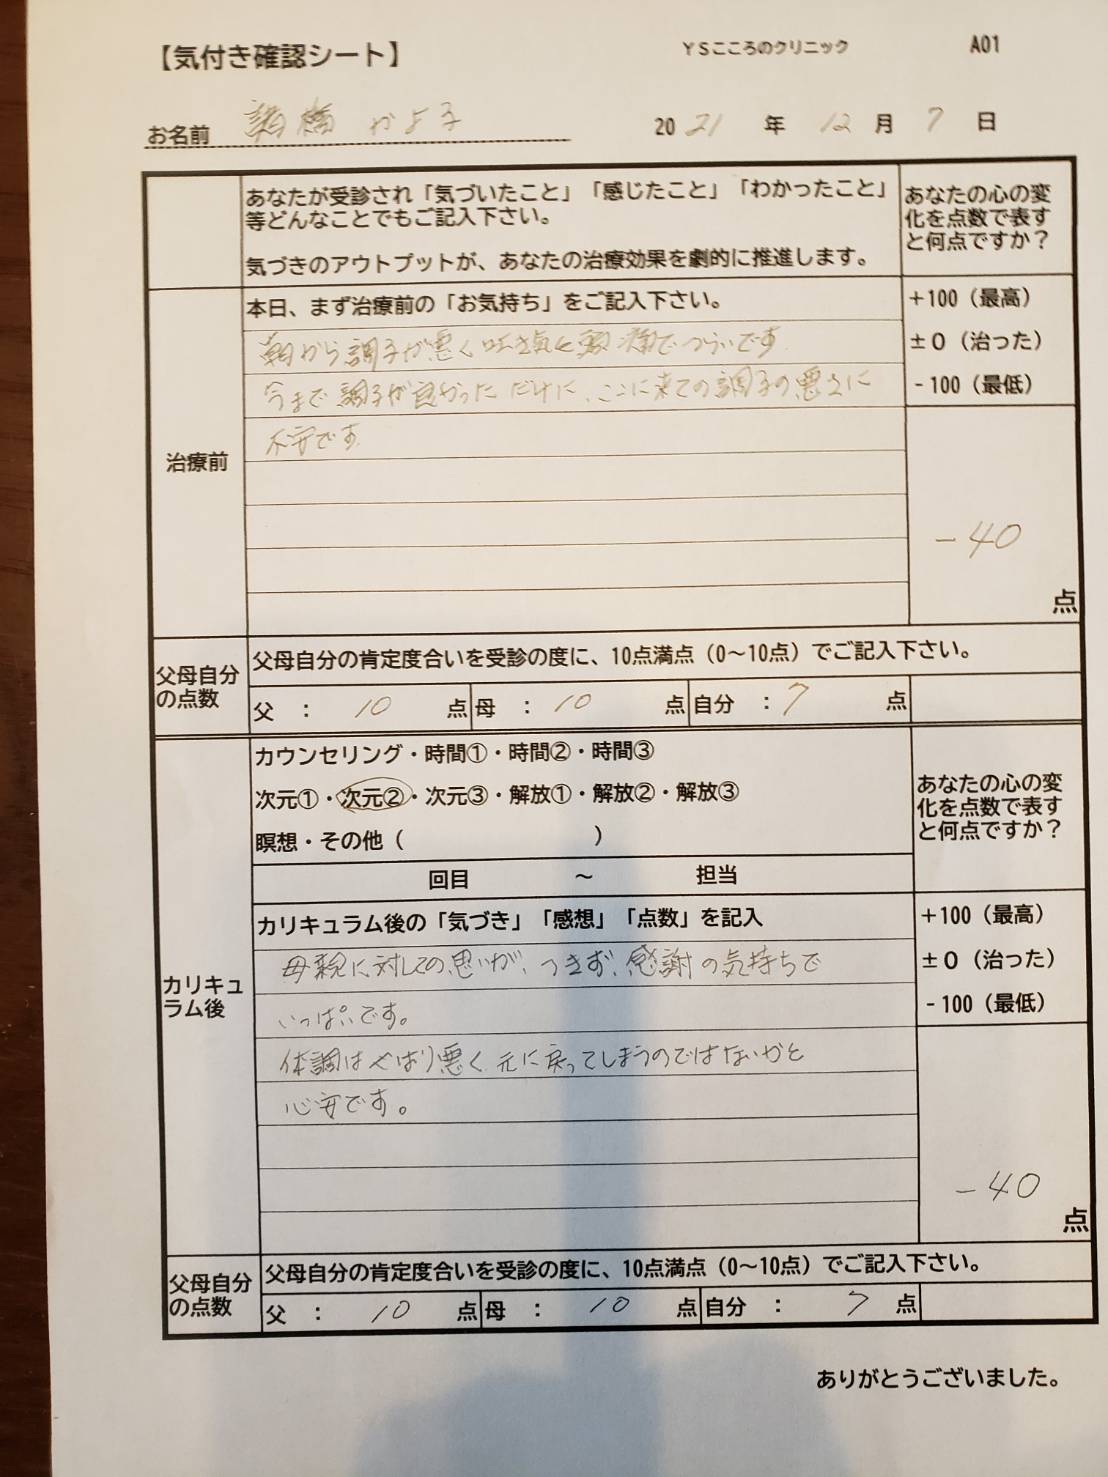 【気付き確認シート】
YSこころのクリニック
A01
お名前 橋 かよ子
2021 年 12 月 7 日
あなたが受診され「気づいたこと」「感じたこと」「わかったこと」
等どんなことでもご記入下さい。
気づきのアウトプットが、あなたの治療効果を劇的に推進します。
あなたの心の変
化を点数で表す
と何点ですか？
治療前
本日、まず治療前の「お気持ち」をご記入下さい。
朝から調子が悪く吐き気と頭痛でつらいです
今まで調子が良かっただけに、ここに来ての調子の悪さに
不安です
+100（最高）
±0（治った）
-100（最低）
-40
点
父母自分
の点数
父母自分の肯定度合いを受診の度に、10点満点（0～10点）でご記入下さい。
父 ： 10 点 母 ： 10 点 自分 ： 7 点
カリキュ
ラム後
カウンセリング・時間①・時間②・時間③
次元①・次元②・次元③・解放①・解放②・解放③
瞑想・その他（ ）
回目 ～ 担当
あなたの心の変
化を点数で表す
と何点ですか？
カリキュラム後の「気づき」「感想」「点数」を記入
母親に対しての思いが、つきず、感謝の気持ちで
いっぱいです。
体調はやはり悪く、元に戻ってしまうのではないかと
心安です。
+100（最高）
±0（治った）
-100（最低）
-40
点
父母自分
の点数
父母自分の肯定度合いを受診の度に、10点満点（0～10点）でご記入下さい。
父 ： 10 点 母 ： 10 点 自分 ： 7 点
ありがとうございました。